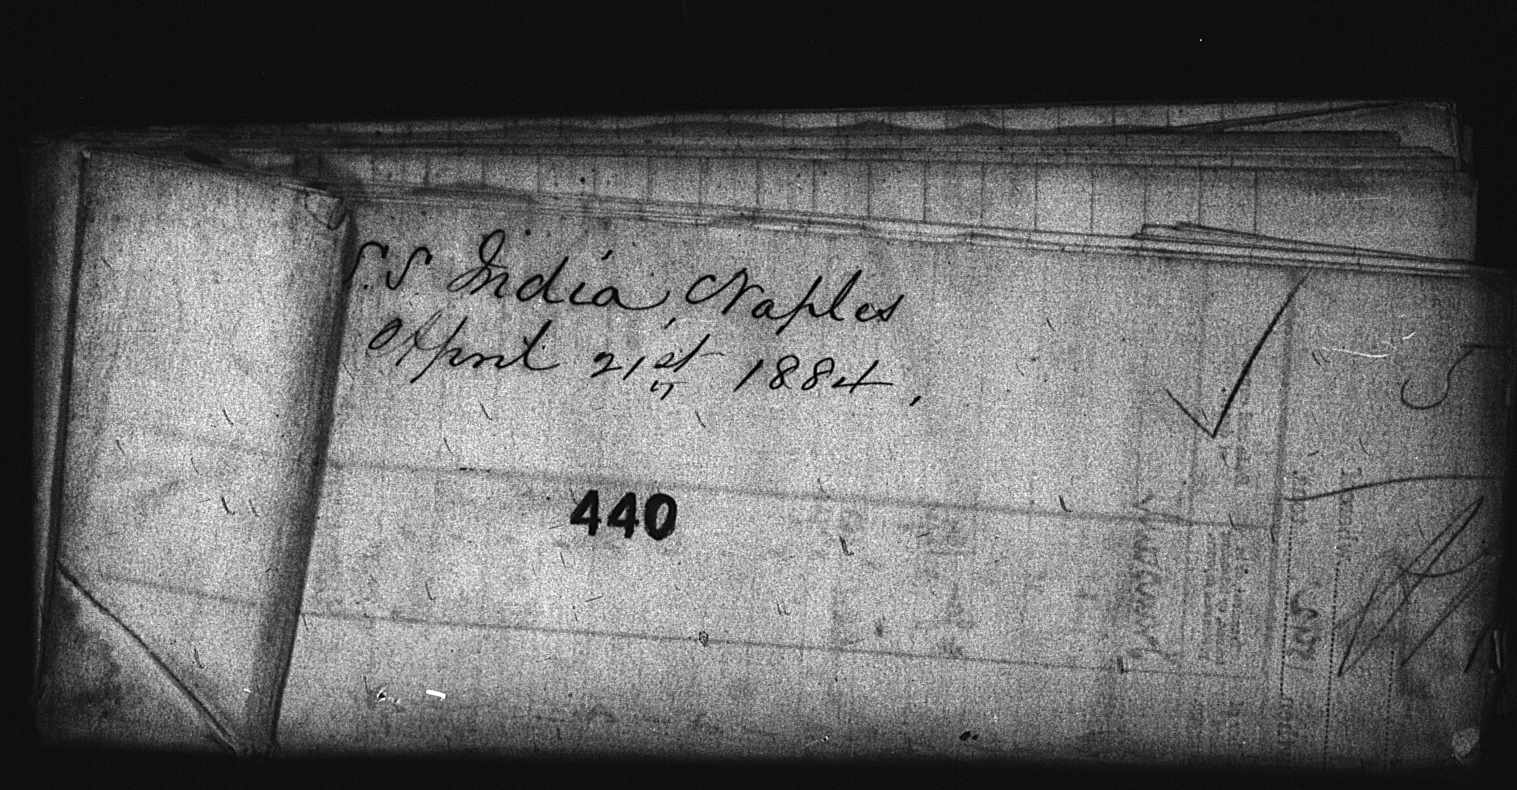 S.S India, Naples
April 21st 1884,
440